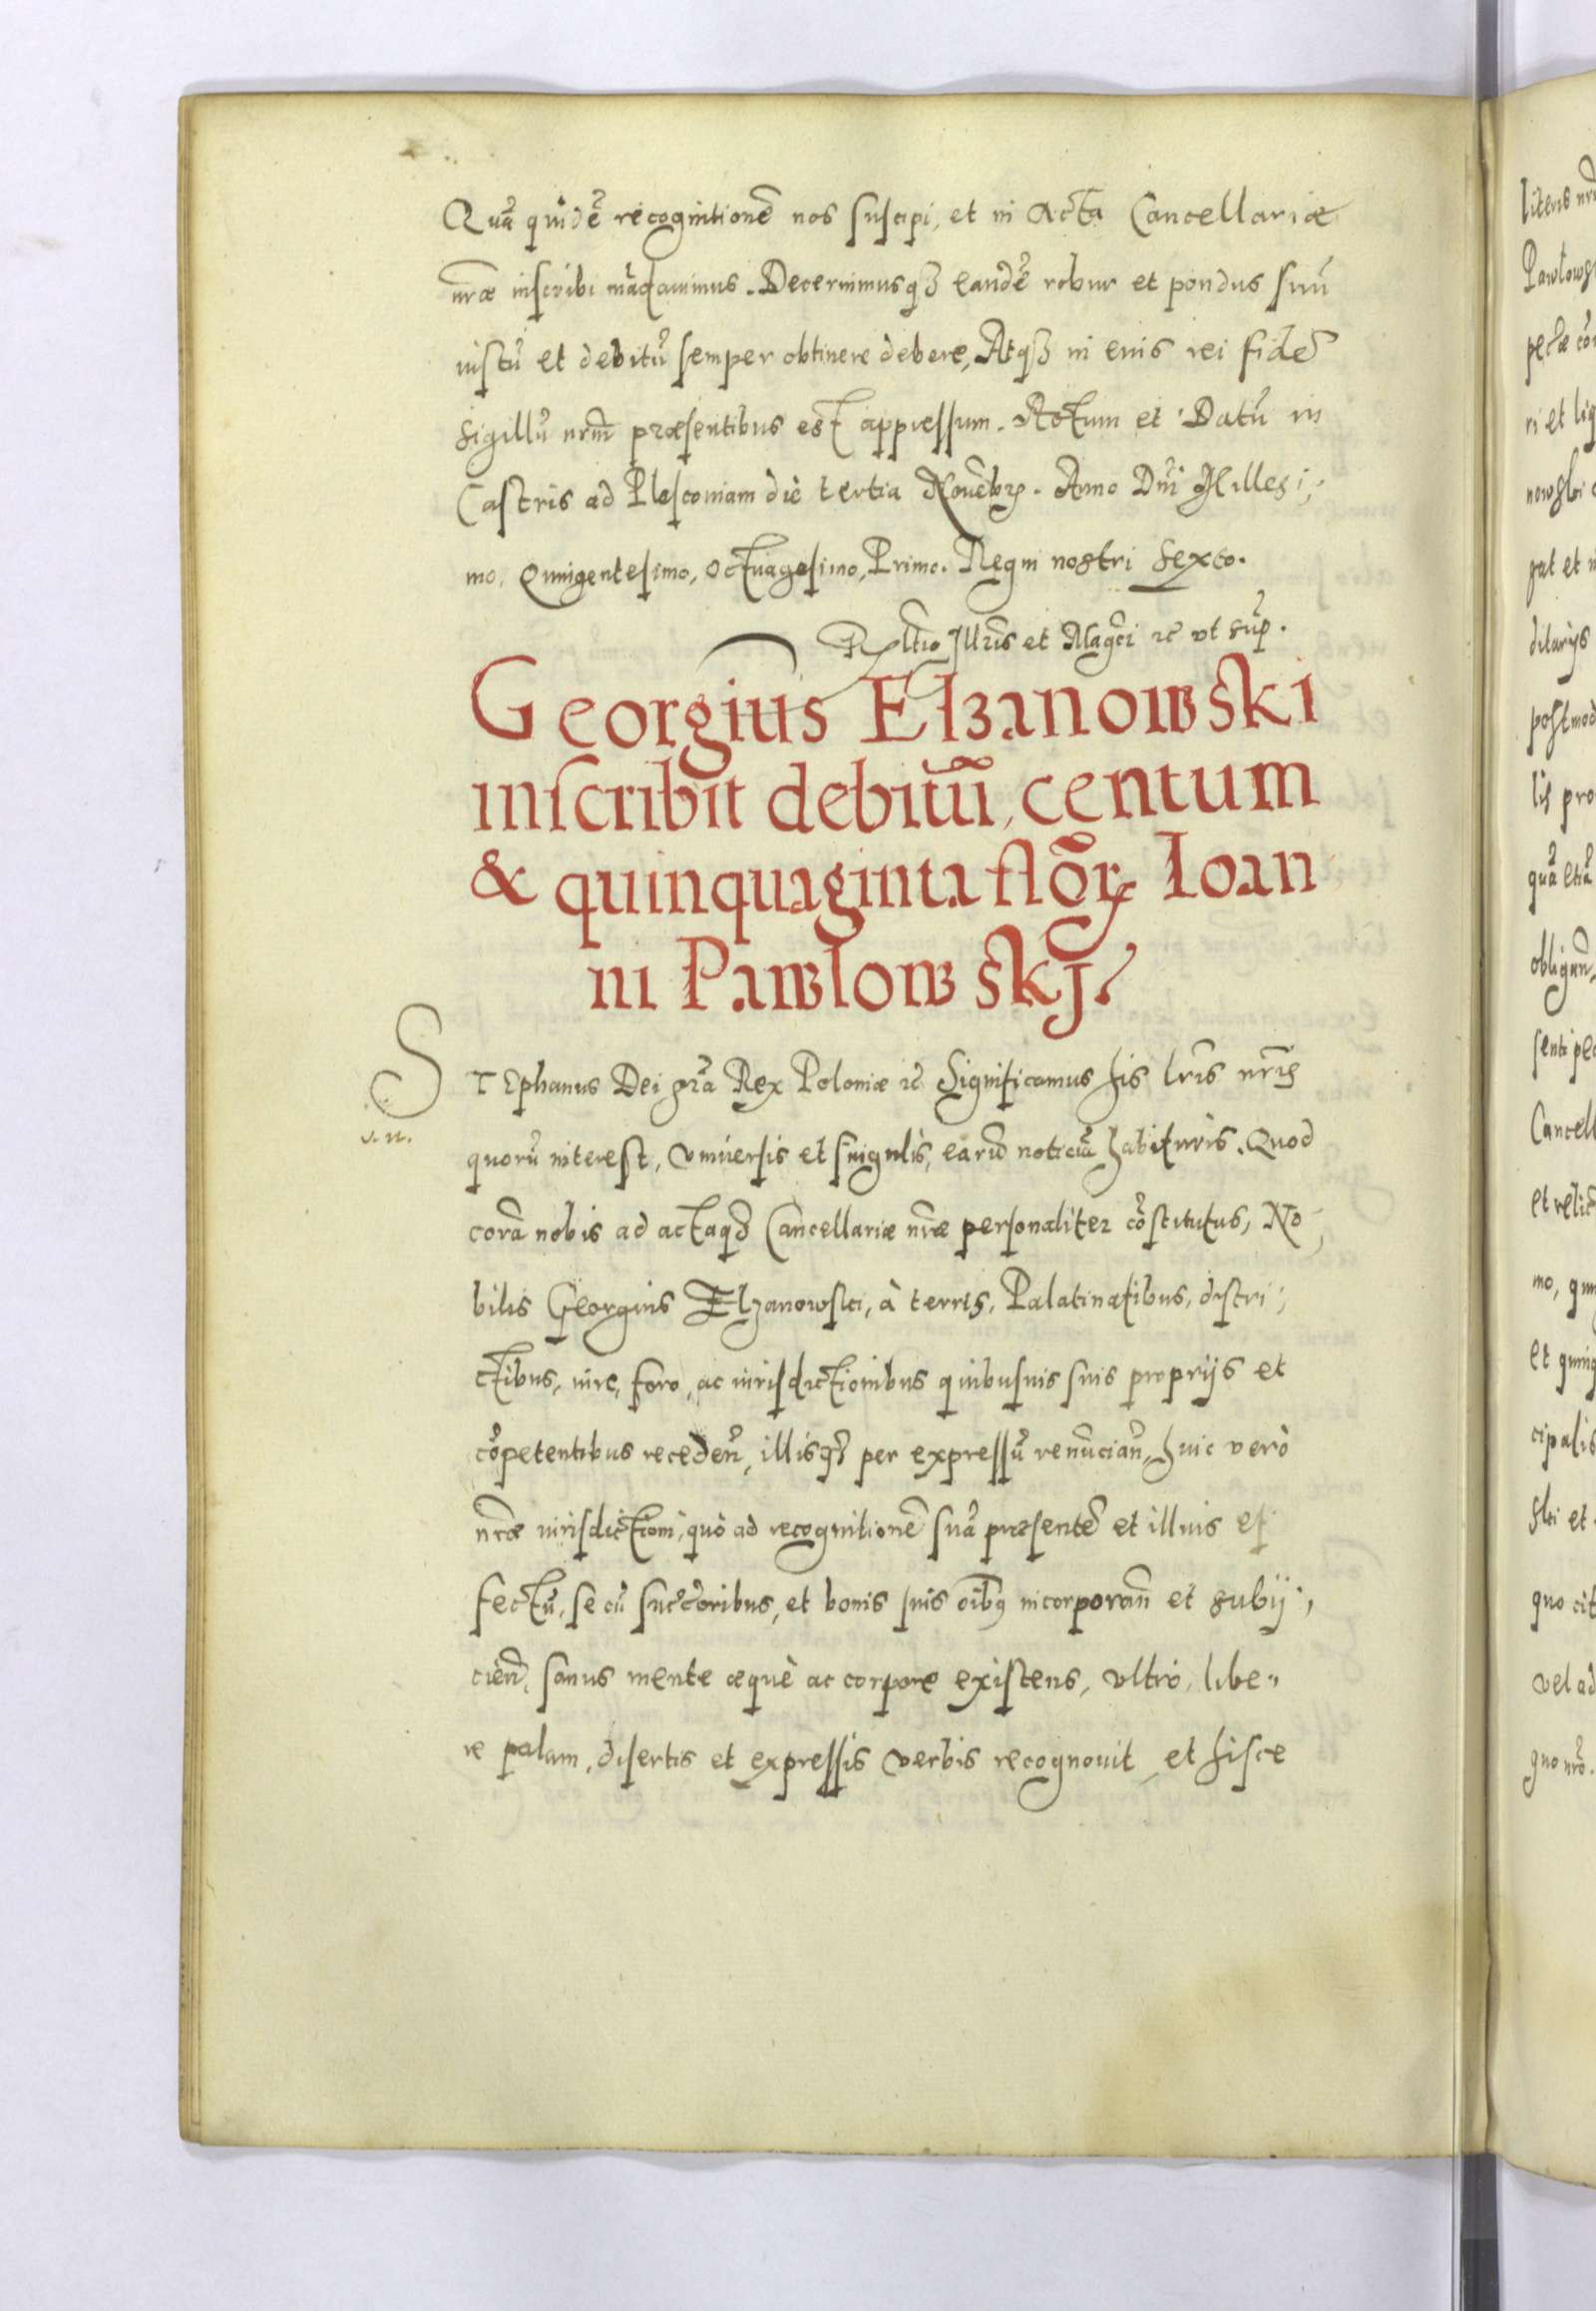 Quā quidē recognitionē nos suscipi, et in Acta Cancellariæ
nr̄æ inscribi mādauimus. Decernimusqȝ eandē robur et pondus suū
iustū et debitū semper obtinere debere, Atqȝ in euis rei fidē
sigillū nrm̄ præsentibus est appressum. Actum et Datū in
Castris ad Plesconiam die tertia Nouēbrꝫ. Anno Dnī Millesi,,
mo, Quingentesimo, Octuagesimo, Primo. Regni nostri sexto.
Rltio Illrīs et Magci ꝛc̄ vt sup̄.
Georgius Elzanowski
inscribit debitū, centum
& quinquaginta flōrꝫ Ioan
ni Pawlowskj.
STEphanus Dei gr̄a Rex Poloniæ ꝛc̄ Significamus his lrīs nrīs
quorū interest, vniuersis et singulis, earū noticiā habituris. Quod
corā nobis ad actaqȝ Cancellariæ nr̄æ personaliter cōstitutus, No,,
bilis Georgius Elzanowski, à terris, Palatinatibus, distri,,
ctibus, iure, foro, ac iurisdictionibus quibusuis suis proprijs et
cōpetentibus recedeñ, illisqȝ per expressū renūciañ, huic verò
nr̄æ iurisdictioni, quò ad recognitionē suā præsentē et illius ef
fectū, se cū succ̄oribus, et bonis suis oībꝫ incorporañ et subij,,
cieñ, sanus mente æquè ac corpore existens, vltrò, libe,,
re palam, disertis et expressis verbis recognouit, et hisce